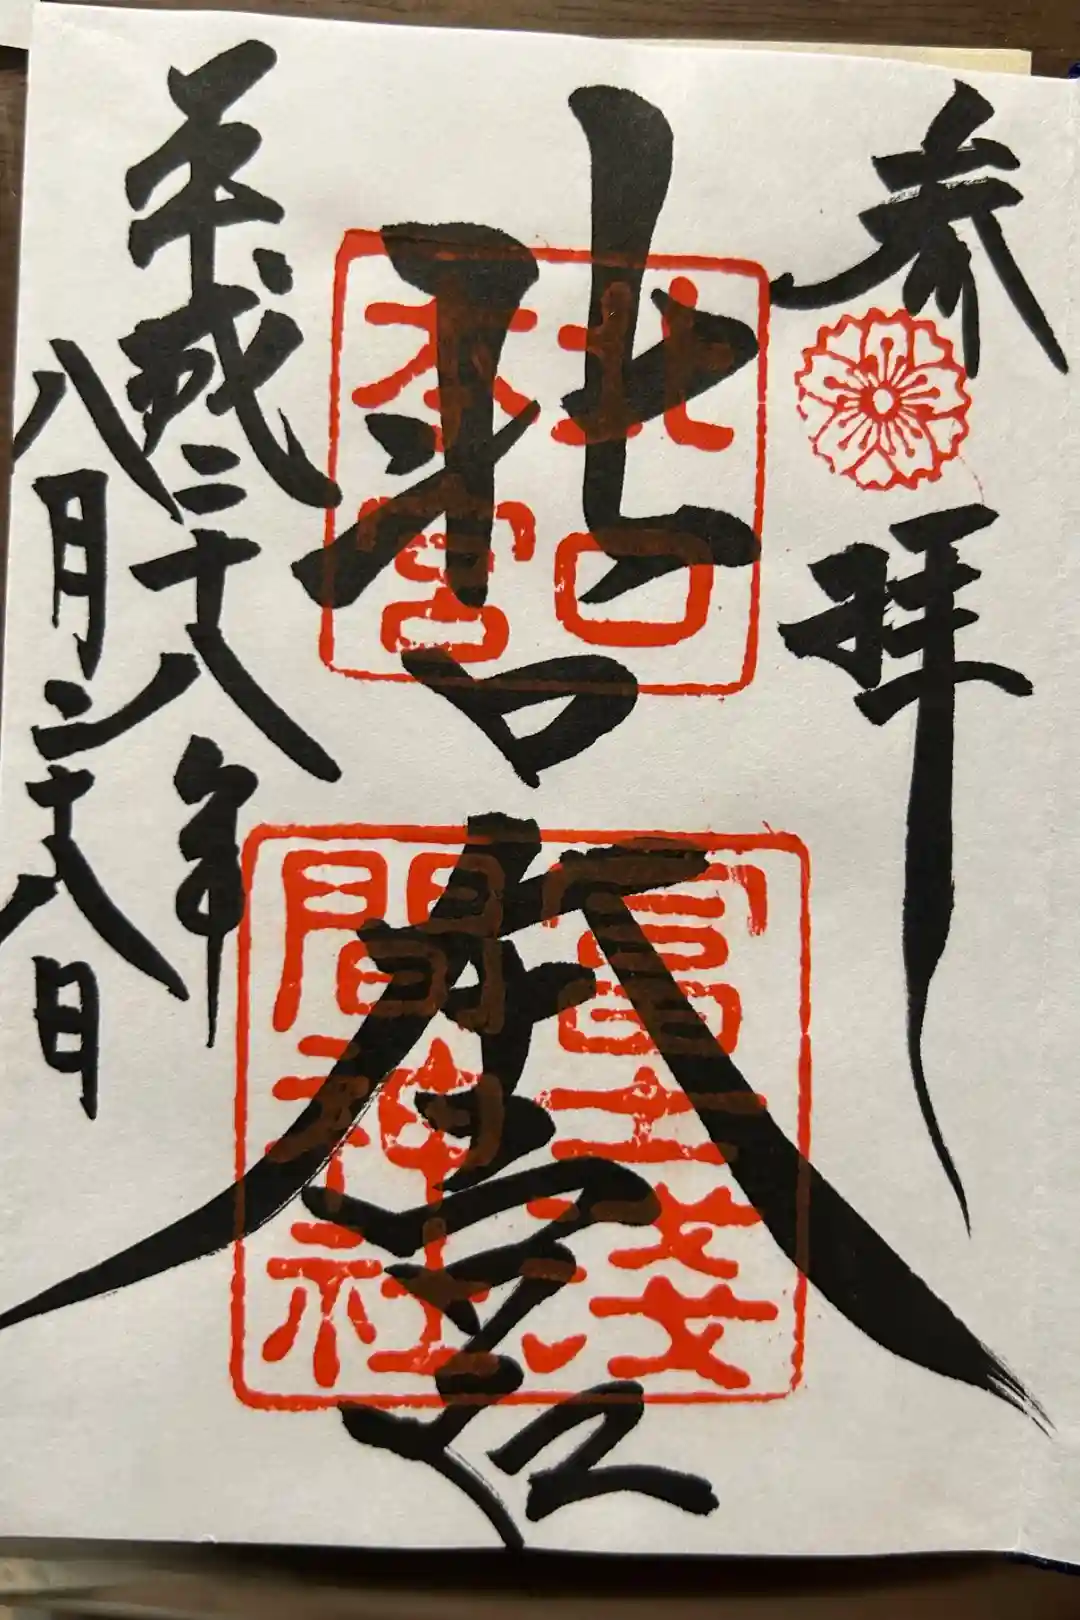 奉拝
北口
北口
本宮
冨士浅
間神社
平成二十八年
八月二十八日